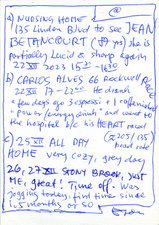 @
a) NURSING HOME
135 Linden Blvd to see JEAN
BETANCOURT ( yrs) she is
partially lucid & sharp again
22 XII 2023 1525-1630
b) CARLOS ALVES 66 Rockwell PLACE
22 XII 17-22 He drank
a few days ago 3 espressi + 1 coffee
+ "power/energy drink" and went to
the hospital b/c his HEART
c) 25 XII ALL DAY
HOME very cozy, grey day
26, 27 XII STONY BROOK, just
ME, great! Time off. Was
jogging today, first time since
1.5 months or so